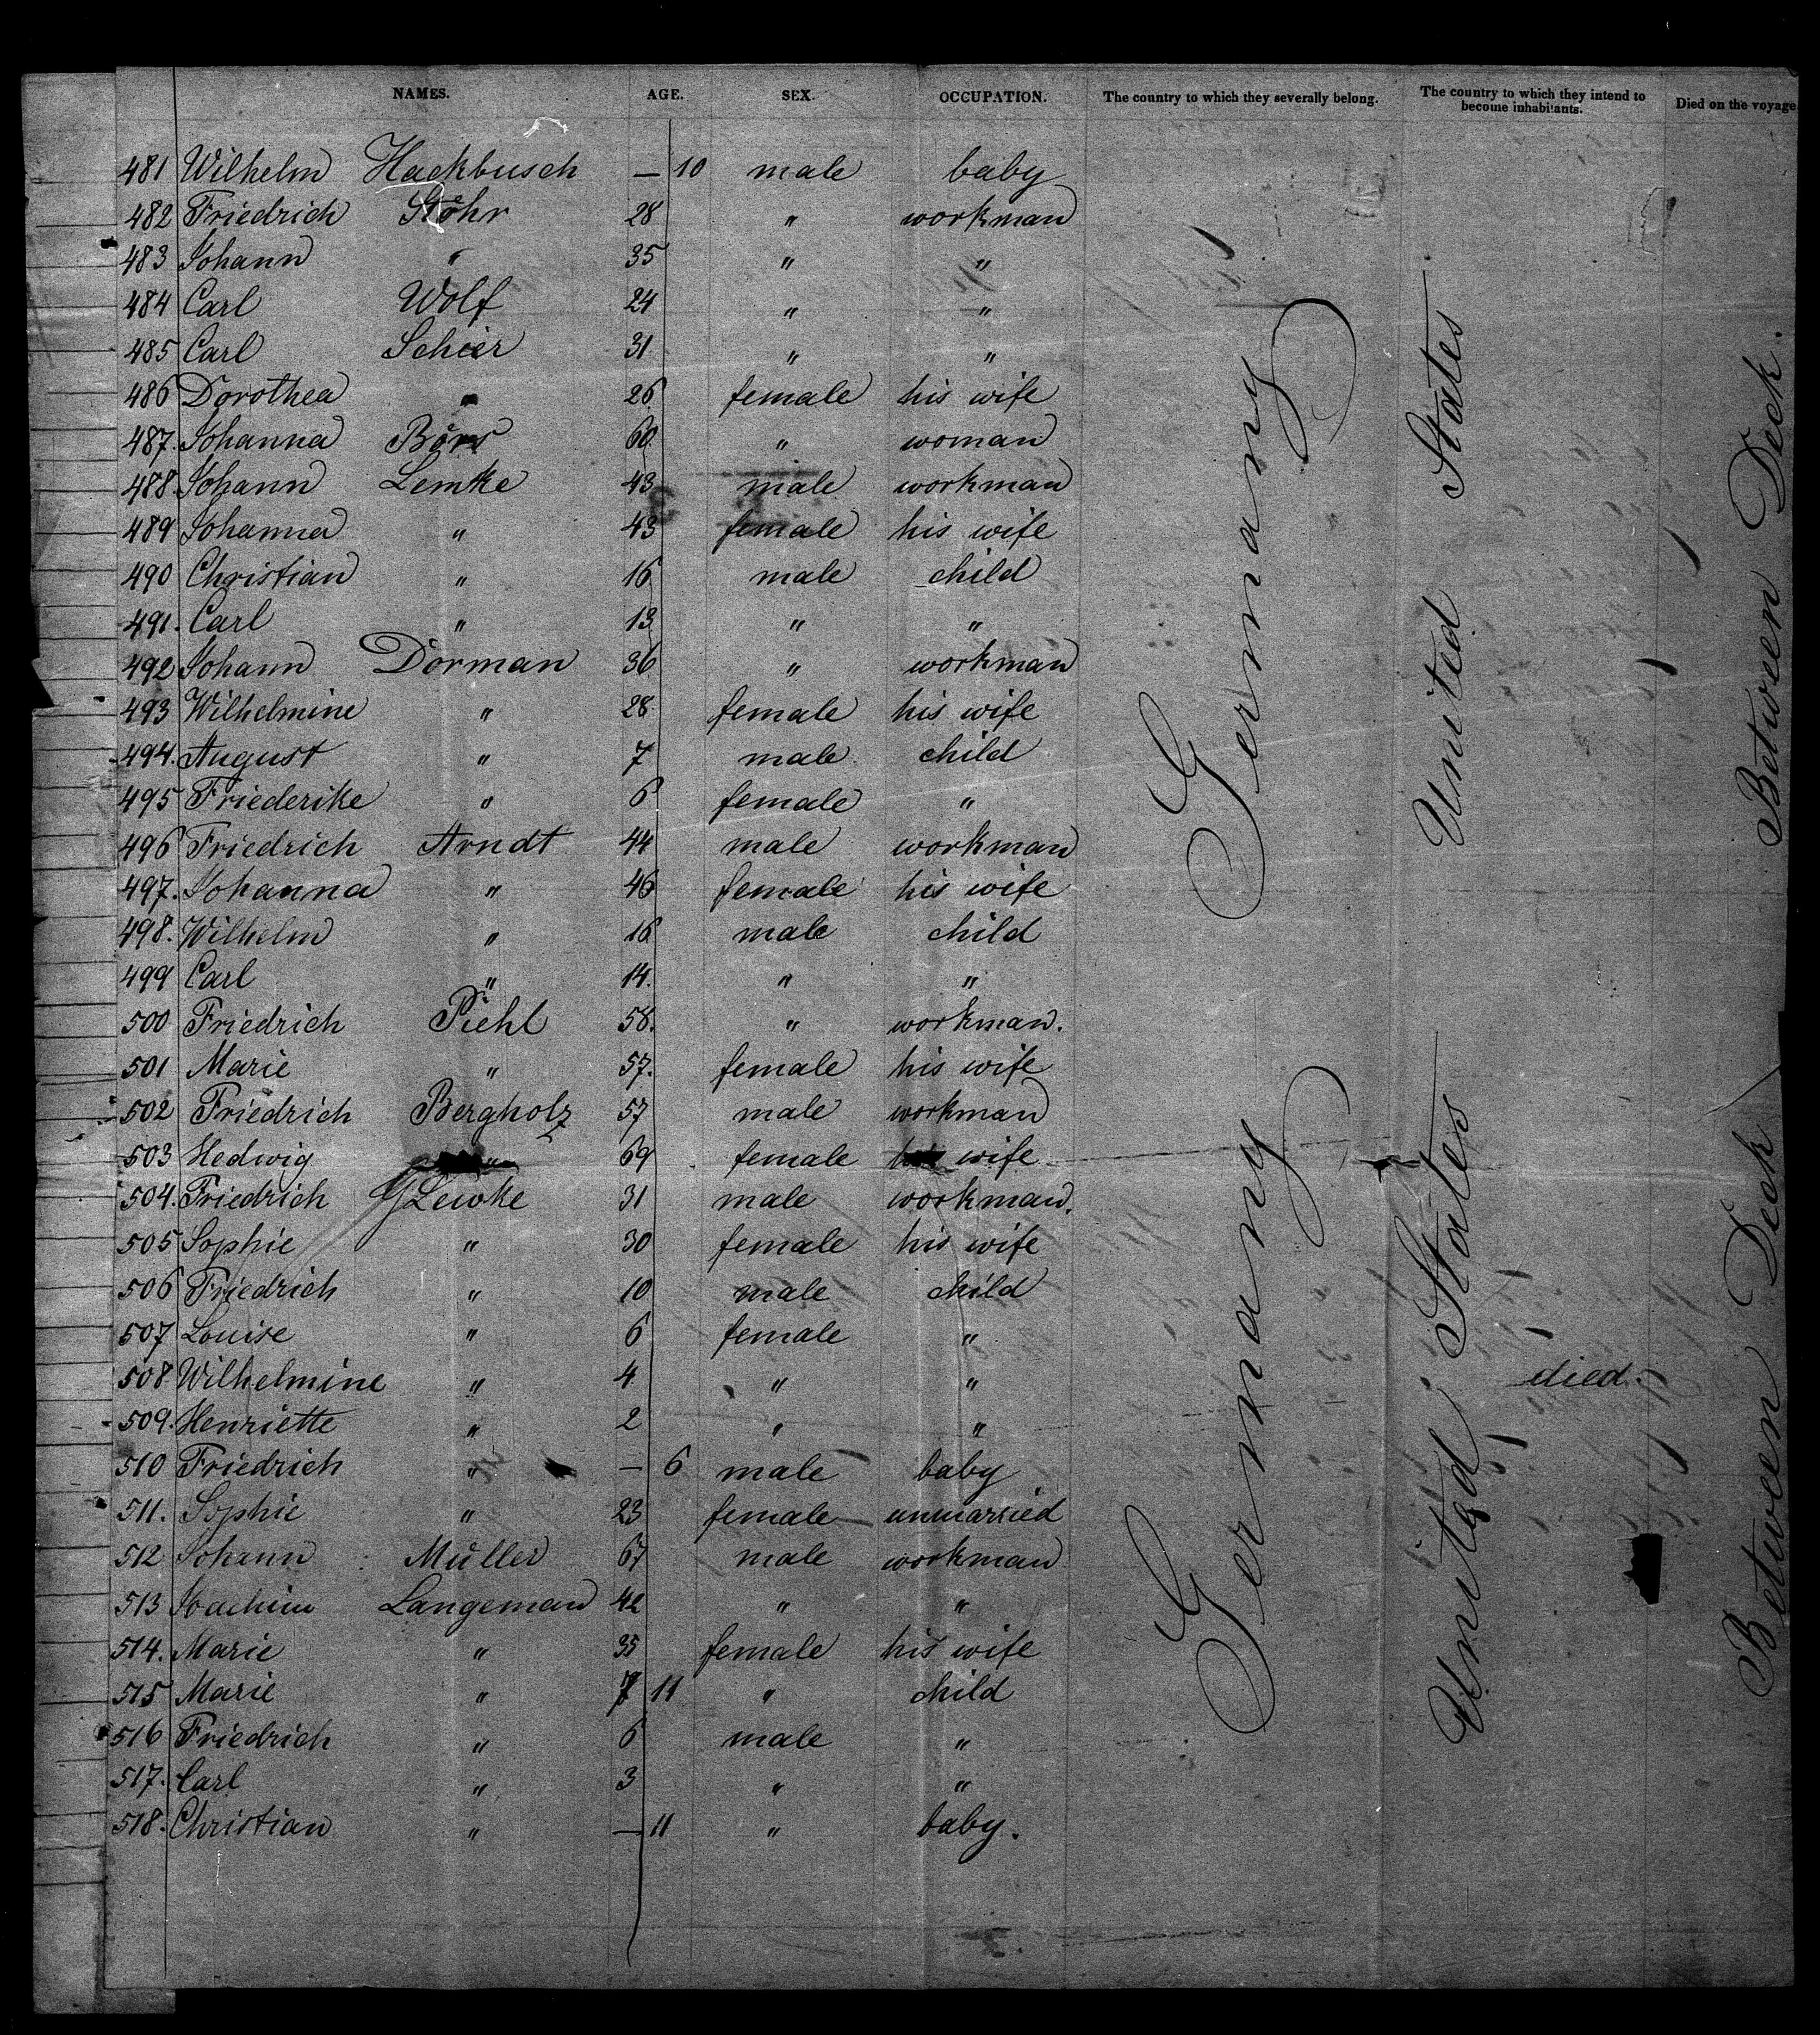 NAMES. AGE. SEX. OCCUPATION. The country to which they severally belong. The country to which they intend to become inhabitants. Died on the voyage.
481 Wilhelm Hackbusch — 10 male baby
482 Friedrich Stöhr 28 " workman
483 Johann " 35 " "
484 Carl Wolf 24 " "
485 Carl Schier 31 " "
486 Dorothea " 26 female his wife
487. Johanna Börs 60 " woman
488. Johann Lemke 43 male workman
489 Johanna " 43 female his wife
490 Christian " 16 male child
491. Carl " 13 " "
492 Johann Dorman 36 " workman
493 Wilhelmine " 28 female his wife
494. August " 7 male child
495 Friederike " 6 female "
496 Friedrich Arndt 44 male workman
497. Johanna " 46 female his wife
498. Wilhelm " 16 male child
499 Carl " 14. " "
500 Friedrich Piehl 58. " workman.
501 Marie " 57. female his wife
502 Friedrich Bergholz 57 male workman
503 Hedwig " 69 female his wife
504. Friedrich 31 male workman.
505 Sophie " 30 female his wife
506 Friedrich " 10 male child
507 Louise " 6 female "
508 Wilhelmine " 4 " " died.
509. Henriette " 2 " "
510 Friedrich " — 6 male baby
511. Sophie " 23 female unmarried
512 Johann Müller 67 male workman
513 Joachim Langeman 42 " "
514. Marie " 35 female his wife
515 Marie " 7 11 " child
516 Friedrich " 6 male "
517. Carl " 3 " "
518. Christian " — 11 " baby.
Germany
Germany
United States
United States
Between Deck.
Between Deck